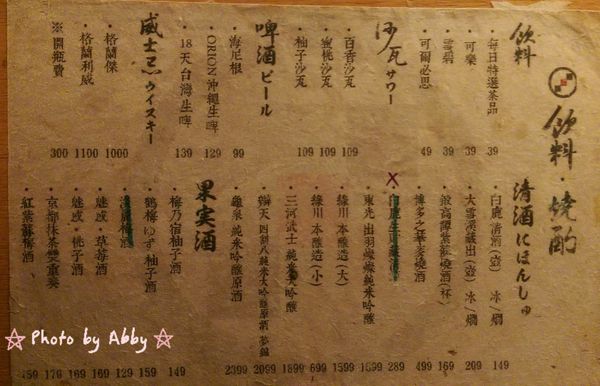 飲料・燒酌
飲料
・每日特選茶品 39
・可樂 39
・雪碧 39
・可爾必思 49
沙瓦サワー
・百香沙瓦 109
・蜜桃沙瓦 109
・柚子沙瓦 109
啤酒ビール
・海尼根 99
・ORION沖繩生啤 129
・18天台灣生啤 139
威士忌ウイスキー
・格蘭傑 1000
・格蘭利威 1100
※開瓶費 300
清酒にほんしゅ
・白鹿清酒(壺) 冰/燗 149
・大雪溪藏出(壺) 冰/燗 209
169
・博多之華麥燒酒 499
289
・東光 出羽燦燦純米吟釀
・綠川 本釀造(大) 1599
・綠川 本釀造(小) 699
・三河武士 純米大吟釀 1899
2099
・龜泉 純米吟釀原酒 2399
果実酒
・梅乃宿柚子酒 149
・鶴梅ゆず柚子酒 159
129
・魅惑・草莓酒 169
・魅惑・桃子酒 169
・京都抹茶雙重奏 179
・紅紫蘇梅酒 159
☆ Photo by Abby ☆